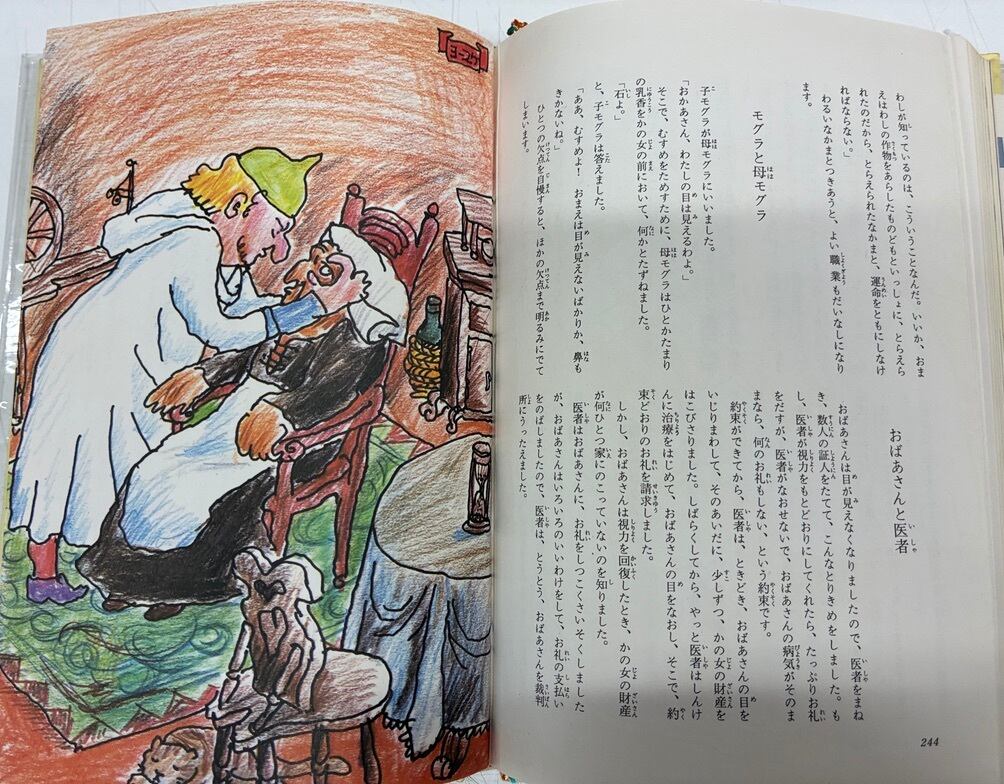 ヨースケ
わしが知っているのは、こういうことなんだ。いいか、おま
えはわしの作物をあらしたものどもといっしょに、とらえら
れたのだから、とらえられたなかまと、運命をともにしなけ
ればならない。」
わるいなかまとつきあうと、よい職業もだいなしになり
ます。
モグラと母モグラ
子モグラが母モグラにいいました。
「おかあさん、わたしの目は見えるわよ。」
そこで、むすめをためすために、母モグラはひとかたまり
の乳香をかの女の前において、何かとたずねました。
「石よ。」
と、子モグラは答えました。
「ああ、むすめよ! おまえは目が見えないばかりか、鼻も
きかないね。」
ひとつの欠点を自慢すると、ほかの欠点まで明るみにでて
しまいます。
おばあさんと医者
おばあさんは目が見えなくなりましたので、医者をまね
き、数人の証人をたてて、こんなとりきめをしました。も
し、医者が視力をもとどおりにしてくれたら、たっぷりお礼
をだすが、医者がなおせないで、おばあさんの病気がそのま
まなら、何のお礼もしない、という約束です。
約束ができてから、医者は、ときどき、おばあさんの目を
いじりまわして、そのあいだに、少しずつ、かの女の財産を
はこびさりました。しばらくしてから、やっと医者はしんけ
んに治療をはじめて、おばあさんの目をなおし、そこで、約
束どおりのお礼を請求しました。
しかし、おばあさんは視力を回復したとき、かの女の財産
が何ひとつ家にのこっていないのを知りました。
医者はおばあさんに、お礼をしつこくさいそくしました
が、おばあさんはいろいろのいいわけをして、お礼の支払い
をのばしましたので、医者は、とうとう、おばあさんを裁判
所にうったえました。
244